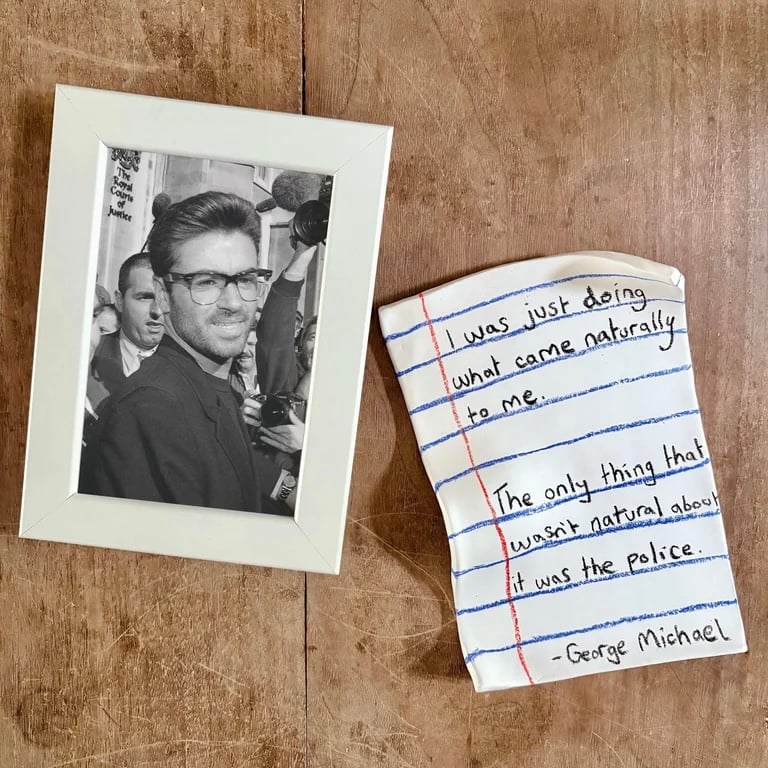 The
Royal
Courts
of
Justice
I was just doing
what came naturally
to me.
The only thing that
wasn't natural about
it was the police.
-George Michael